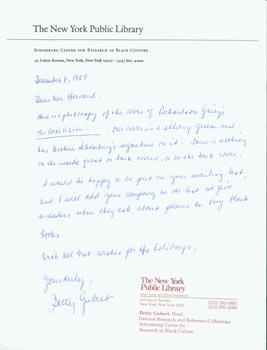 The New York Public Library
SCHOMBURG CENTER FOR RESEARCH IN BLACK CULTURE
515 Lenox Avenue, New York, New York 10037 - (212) 862-4000
December 8, 1987
Dear Mr. Howard:
Here is a photocopy of the cover of Richardson Gainey's
Our cover is a olivey green and
has Arthur Schomburg's signature on it. There is nothing
on the inside front or back covers, or on the back cover.
I would be happy to be put on your mailing list,
and I will add your company to the list we give
to readers when they ask about places to buy black
books.
With all best wishes for the holidays.
Yours truly,
Betty Gubert
The New York
Public Library
Astor, Lenox and Tilden Foundations
515 Lenox Avenue
New York, New York 10037
Betty Gubert, Head
General Research and Reference Collections
Schomburg Center for
Research in Black Culture
(212) 862-4000